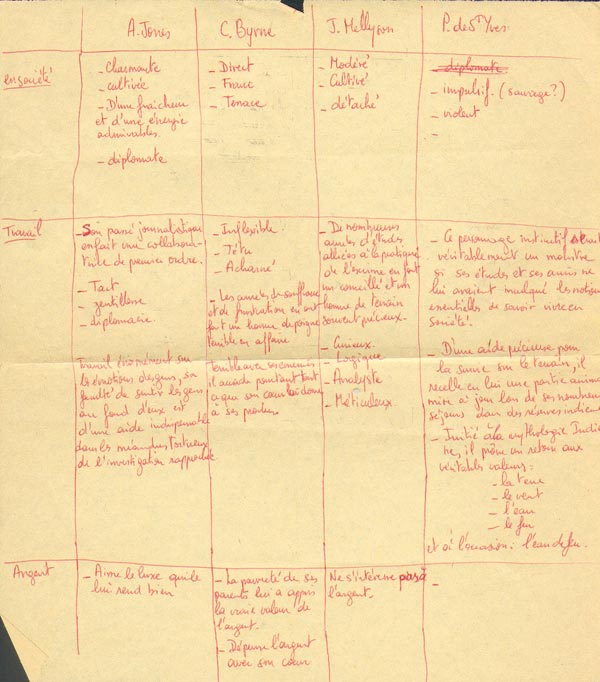 A. Jones
C. Byrne
J. Mellyson
P. de St Yves
en société
- Charmante
- cultivée
- D'une fraîcheur
et d'une énergie
admirables.
- diplomate
- Direct
- Franc
- Tenace
- Modéré
- Cultivé
- détaché
- diplomate
- impulsif. (sauvage?)
- violent
-
Travail
- Son passé journalistique
en fait une collabora-
trice de premier ordre.
- Tact
- gentillesse
- diplomatie.
Travail énormément sur
les émotions des gens, sa
faculté de sentir les gens
au fond d'eux est
d'une aide indispensable
dans les méandres tortueux
de l'investigation rapprochée
- Inflexible
- Têtu
- Acharné
- Les années de souffrance
et de frustration en ont
fait un homme de poigne
terrible en affaire
terrible avec ses ennemis
il accorde pourtant tant
a que son cœur lui donne
à ses proches.
- De nombreuses
années d'études
alliées à la pratique
de l'escrime en font
un conseillé et un
homme de terrain
souvent précieux.
- Curieux
- Logique
- Analyste
- Méticuleux.
- Ce personnage instinctif serait
véritablement un monstre
si ses études et ses amis ne
lui avaient inculqué les notions
essentielles de savoir vivre en
société.
- D'une aide précieuse pour
la survie sur le terrain, il
recelle en lui une partie anima
mise à jour lors de ses nombreux
séjours dans des réserves indiennes
- Initié à la mythologie Indien
ne, il prône un retour aux
véritables valeurs :
- la terre
- le vent
- l'eau
- le feu
et à l'occasion : l'eau de feu.
Argent
- Aime le luxe qui le
lui rend bien
- La pauvreté de ses
parents lui a appris
la vraie valeur de
l'argent.
- Dépense l'argent
avec son cœur
Ne s'intéresse pas à
l'argent.
-